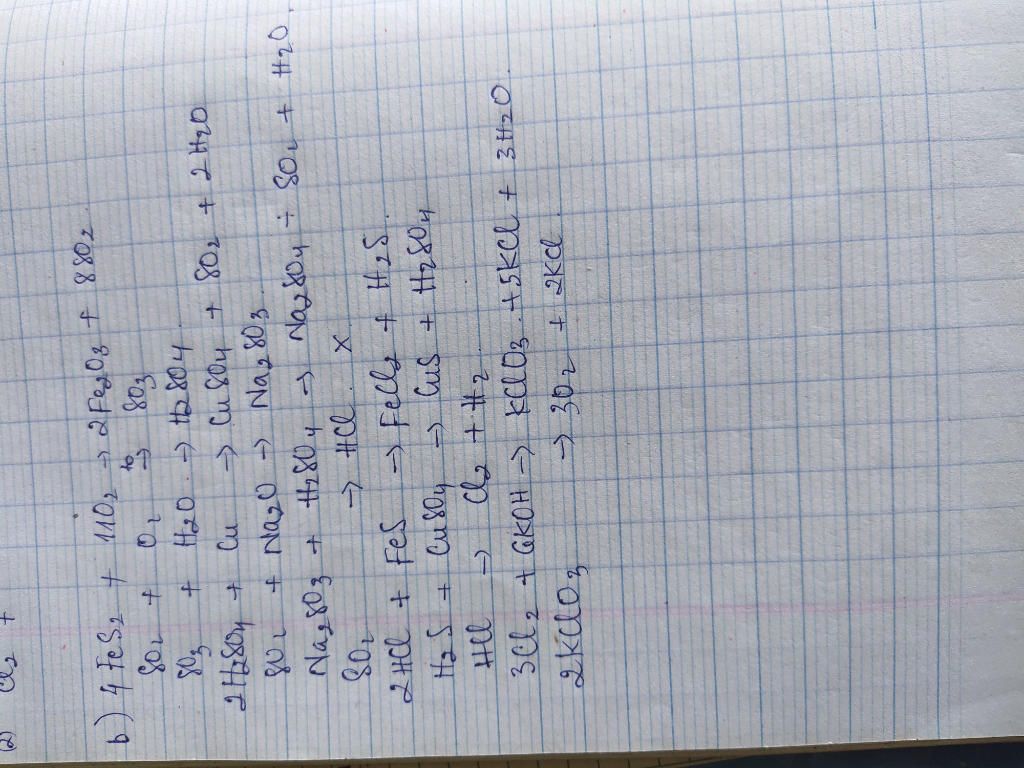 (2) Cl2 +
b) 4 FeS2 + 11O2 → 2Fe2O3 + 8SO2.
SO2 + O2 →to SO3
SO3 + H2O → H2SO4
2H2SO4 + Cu → CuSO4 + SO2 + 2H2O
SO2 + Na2O → Na2SO3.
Na2SO3 + H2SO4 → Na2SO4 + SO2 + H2O.
SO2 → HCl. X
2HCl + FeS → FeCl2 + H2S.
H2S + CuSO4 → CuS + H2SO4
HCl → Cl2 + H2.
3Cl2 + 6KOH → KClO3. + 5KCl + 3H2O.
2KClO3 → 3O2 + 2KCl.